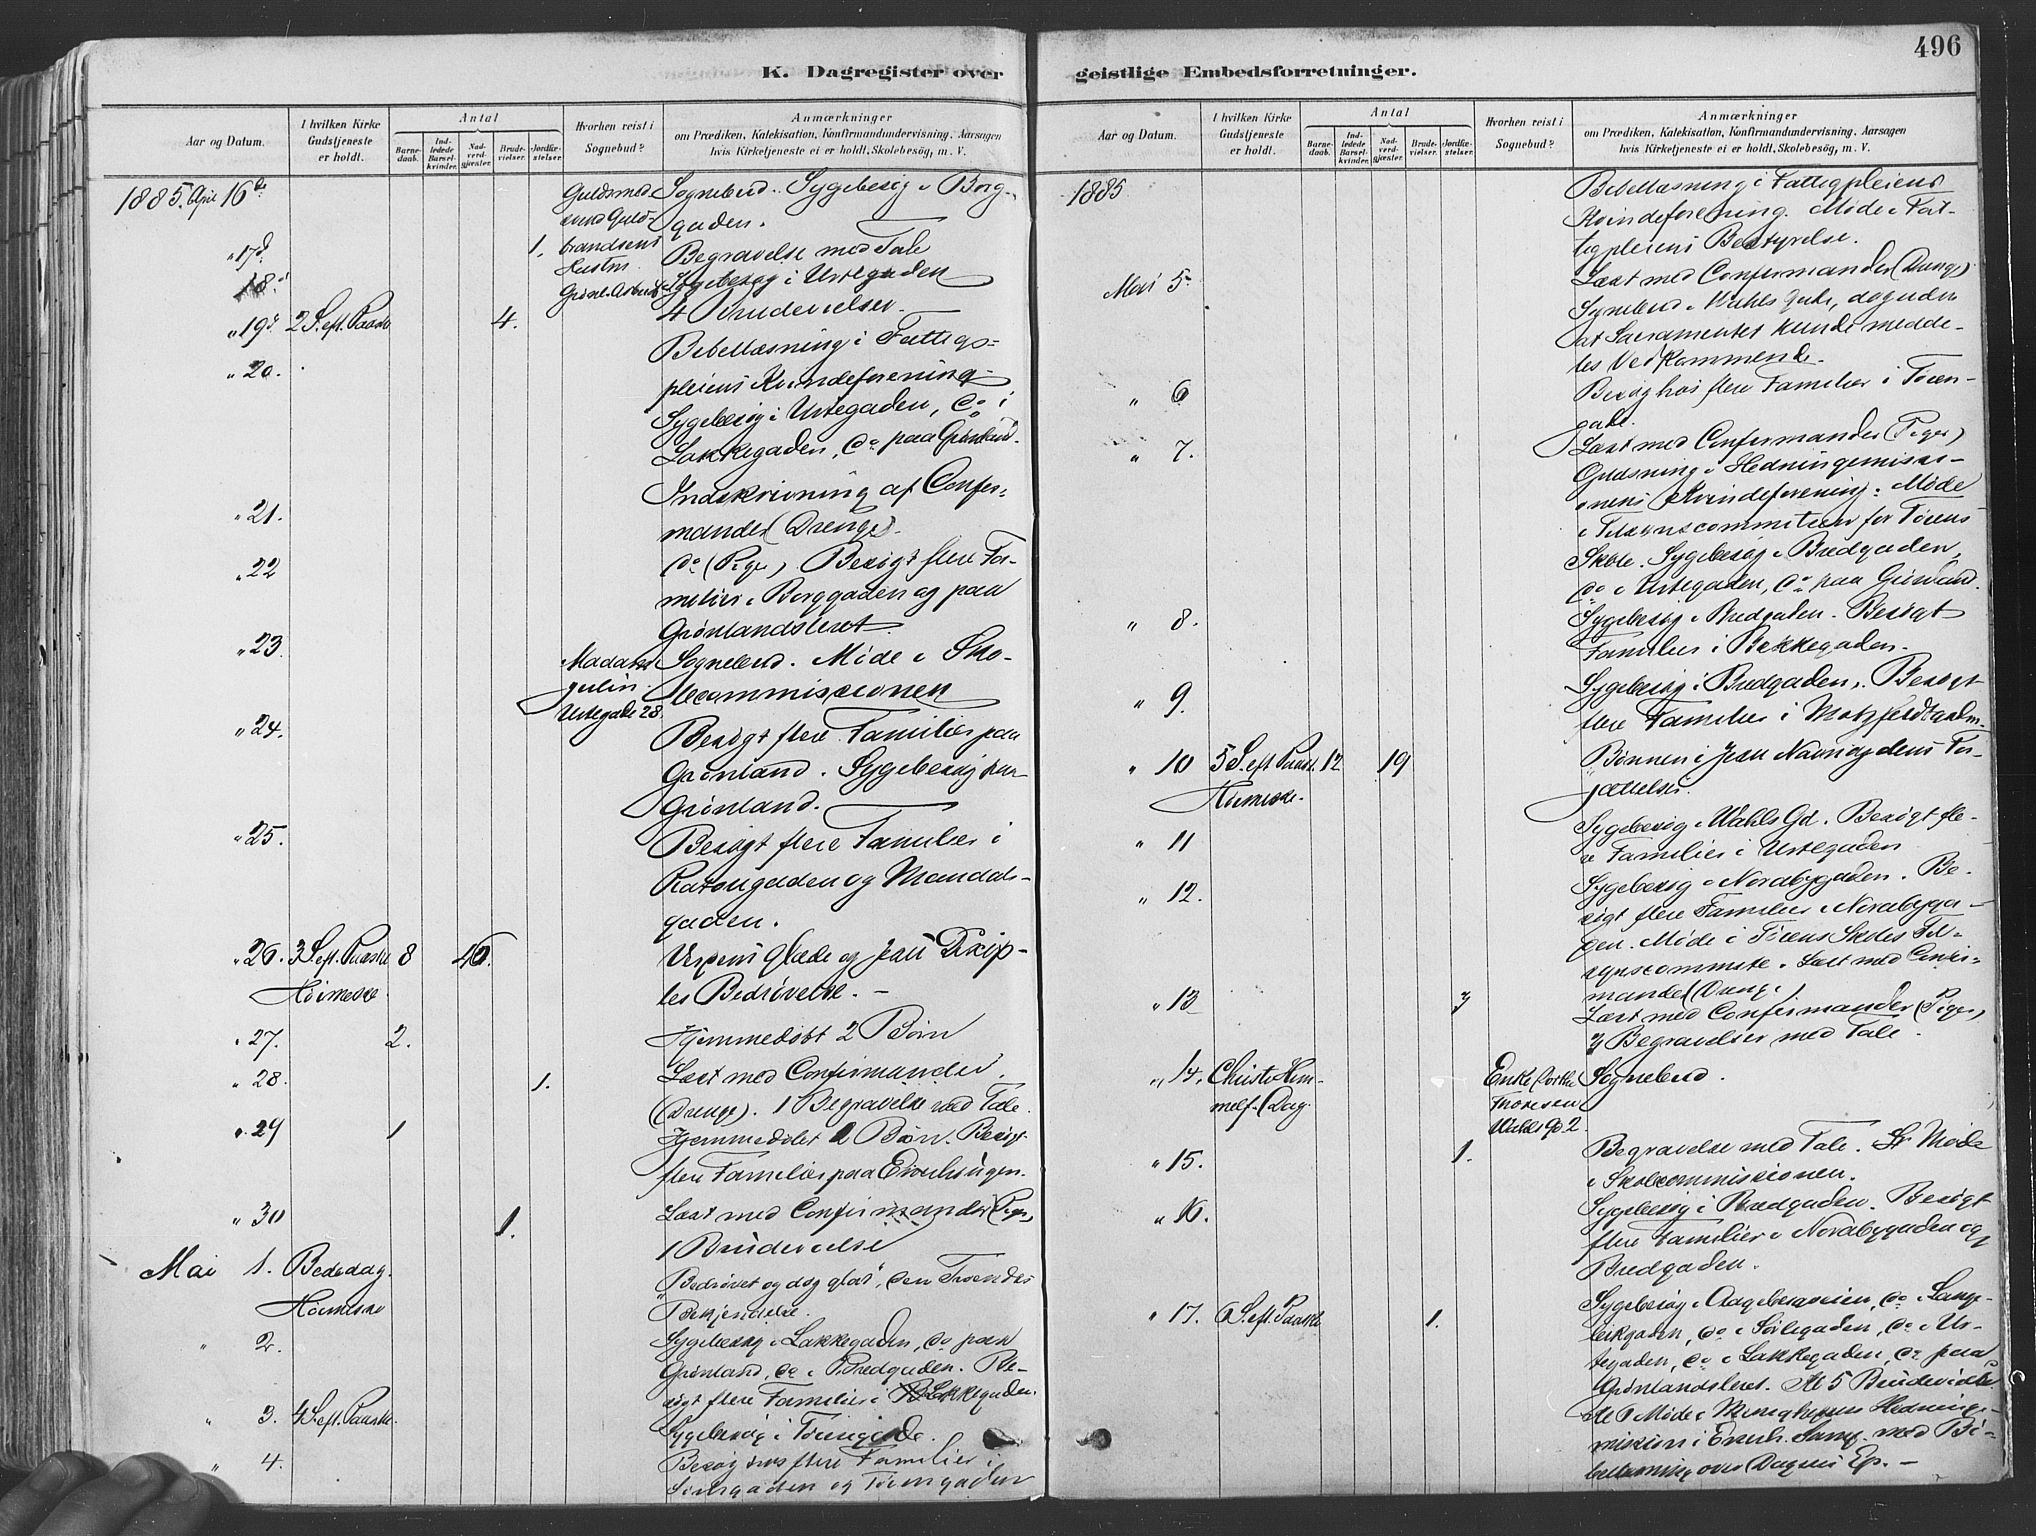 496
K. Dagregister over
geistlige Embedsforretninger.
Aar og Datum.
I hvilken Kirke
Gudstjeneste
er holdt.
Antal
Barne-
daab.
Ind-
ledede
Barsel-
kvinder.
Nad-
verd-
gjæster.
Brude-
vielser.
Jordfæ-
stelser.
Hvorhen reist i
Sognebud?
Anmærkninger
om Prædiken, Katekisation, Konfirmandundervisning, Aarsagen
hvis Kirketjeneste ei er holdt, Skolebesög, m. V.
1885. April 16de
Guldsmed-
svend Guld-
brandsens
Hustru
Sognebud. Sygebesøg i Borg-
gaden.
" 17d
1.
Begravelse med Tale
18d
Sygebesøg i Urtegaden
" 19d 2 S. eft. Paaske
4.
4 Brudevielser.
" 20.
Bibellæsning i Fattigs-
pleiens Kvindeforening
Sygebesøg i Urtegaden, Do i
Lakkegaden, Do paa Grønland.
" 21.
Indskrivning af Confir-
mander (Drenge).
" 22
Do (Piger) Besøgt flere Fa-
milier i Borggaden og paa
Grønlandsleret.
" 23.
Madame
Urtegade 28.
Sognebud. Møde i Sko-
lecommissionen
" 24.
Besøgt flere Familier paa
Grønland. Sygebesøg paa
Grønland.
" 25.
Besøgt flere Familier i
gaden og Mandals-
gaden.
" 26. 3 S. eft. Paaske 8
Høimesse.
Glæde og Disip-
les Bedrøvelse. –
" 27.
2.
Hjemmedøbt 2 Børn
" 28.
1.
Læst med Confirmander.
(Drenge). 1 Begravelse med Tale.
" 29
1
Hjemmedøbt 2 Børn. Besøgt
flere Familier paa Enerhaugen.
" 30
1.
Læst med Confirmander (Piger)
1 Brudevielse
Mai 1. Bededag.
Høimesse
"Bedrøvet og dog glad", den Troendes
Bekjendelse.
" 2.
Sygebesøg i Lakkegaden, Do paa
Grønland, Do i Bredgaden. Be-
søgt flere Familier i Lakkegaden.
" 3. 4 S. eft. Paaske.
Sygebesøg i Tøiengade.
" 4.
Besøg hos flere Familier i
gaden og Tøiengaden
Aar og Datum.
I hvilken Kirke
Gudstjeneste
er holdt.
Antal
Barne-
daab.
Ind-
ledede
Barsel-
kvinder.
Nad-
verd-
gjæster.
Brude-
vielser.
Jordfæ-
stelser.
Hvorhen reist i
Sognebud?
Anmærkninger
om Prædiken, Katekisation, Konfirmandundervisning, Aarsagen
hvis Kirketjeneste ei er holdt, Skolebesög, m. V.
1885
Bibellæsning i Fattigpleiens
Kvindeforening. Møde i Fat-
tigpleiens Bestyrelse.
Mai 5
Læst med Confirmander (Drenge)
Sognebud i Wahls Gade, dog uden
at Sacramentet kunde medde-
les Vedkommende.
" 6
Besøg hos flere Familier i Tøien-
gade.
" 7.
Læst med Confirmander (Piger)
Oplæsning i Hedningemissi-
onens Kvindeforening. Møde
i Tilsynscommitteen for Tøiens
Skole. Sygebesøg i Bredgaden,
Do i Urtegaden, Do paa Grønland.
" 8.
Sygebesøg i Bredgaden. Besøgt
Familier i Bakkegaden.
" 9.
Sygebesøg i Bredgaden. Besøgt
flere Familier i Motzfeldtgaden.
" 10 5 S. eft Paaske 12 19
Høimesse.
Bønnen i Jesu Navn og dens For-
jættelser.
" 11
Sygebesøg i Wahls Gd. Besøgt fle-
re Familier i Urtegaden
" 12.
Sygebesøg i Nordbygaden. Be-
søgt flere Familier i Nordbyga-
den. Møde i Tøiens Skoles Til-
synscommitte. Læst med Confir-
mander (Drenge)
" 13
3
Læst med Confirmander (Piger)
3 Begravelser med Tale.
" 14. Christi Him-
melf. Dag.
Enke Dorthe
Thoresen
Wahls G. 2.
Sognebud.
" 15.
1.
Begravelse med Tale. Møde
i Skolecommissionen.
" 16.
Sygebesøg i Bredgaden. Besøgt
flere Familier i Nordbygaden og
Bredgaden.
" 17. 6 S. eft. Paaske
1.
Sygebesøg i Aagebergveien, Do i Lange-
leikgaden, Do i Sørligaden, Do i Ur-
tegaden, Do i Lakkegaden, Do paa
Grønlandsleret. Kl 5 Brudevielse
Kl 6 Møde i Menighedens Hedninge-
mission i Enerh. Saml. med Bi-
bellæsning over Dagens Ep. –